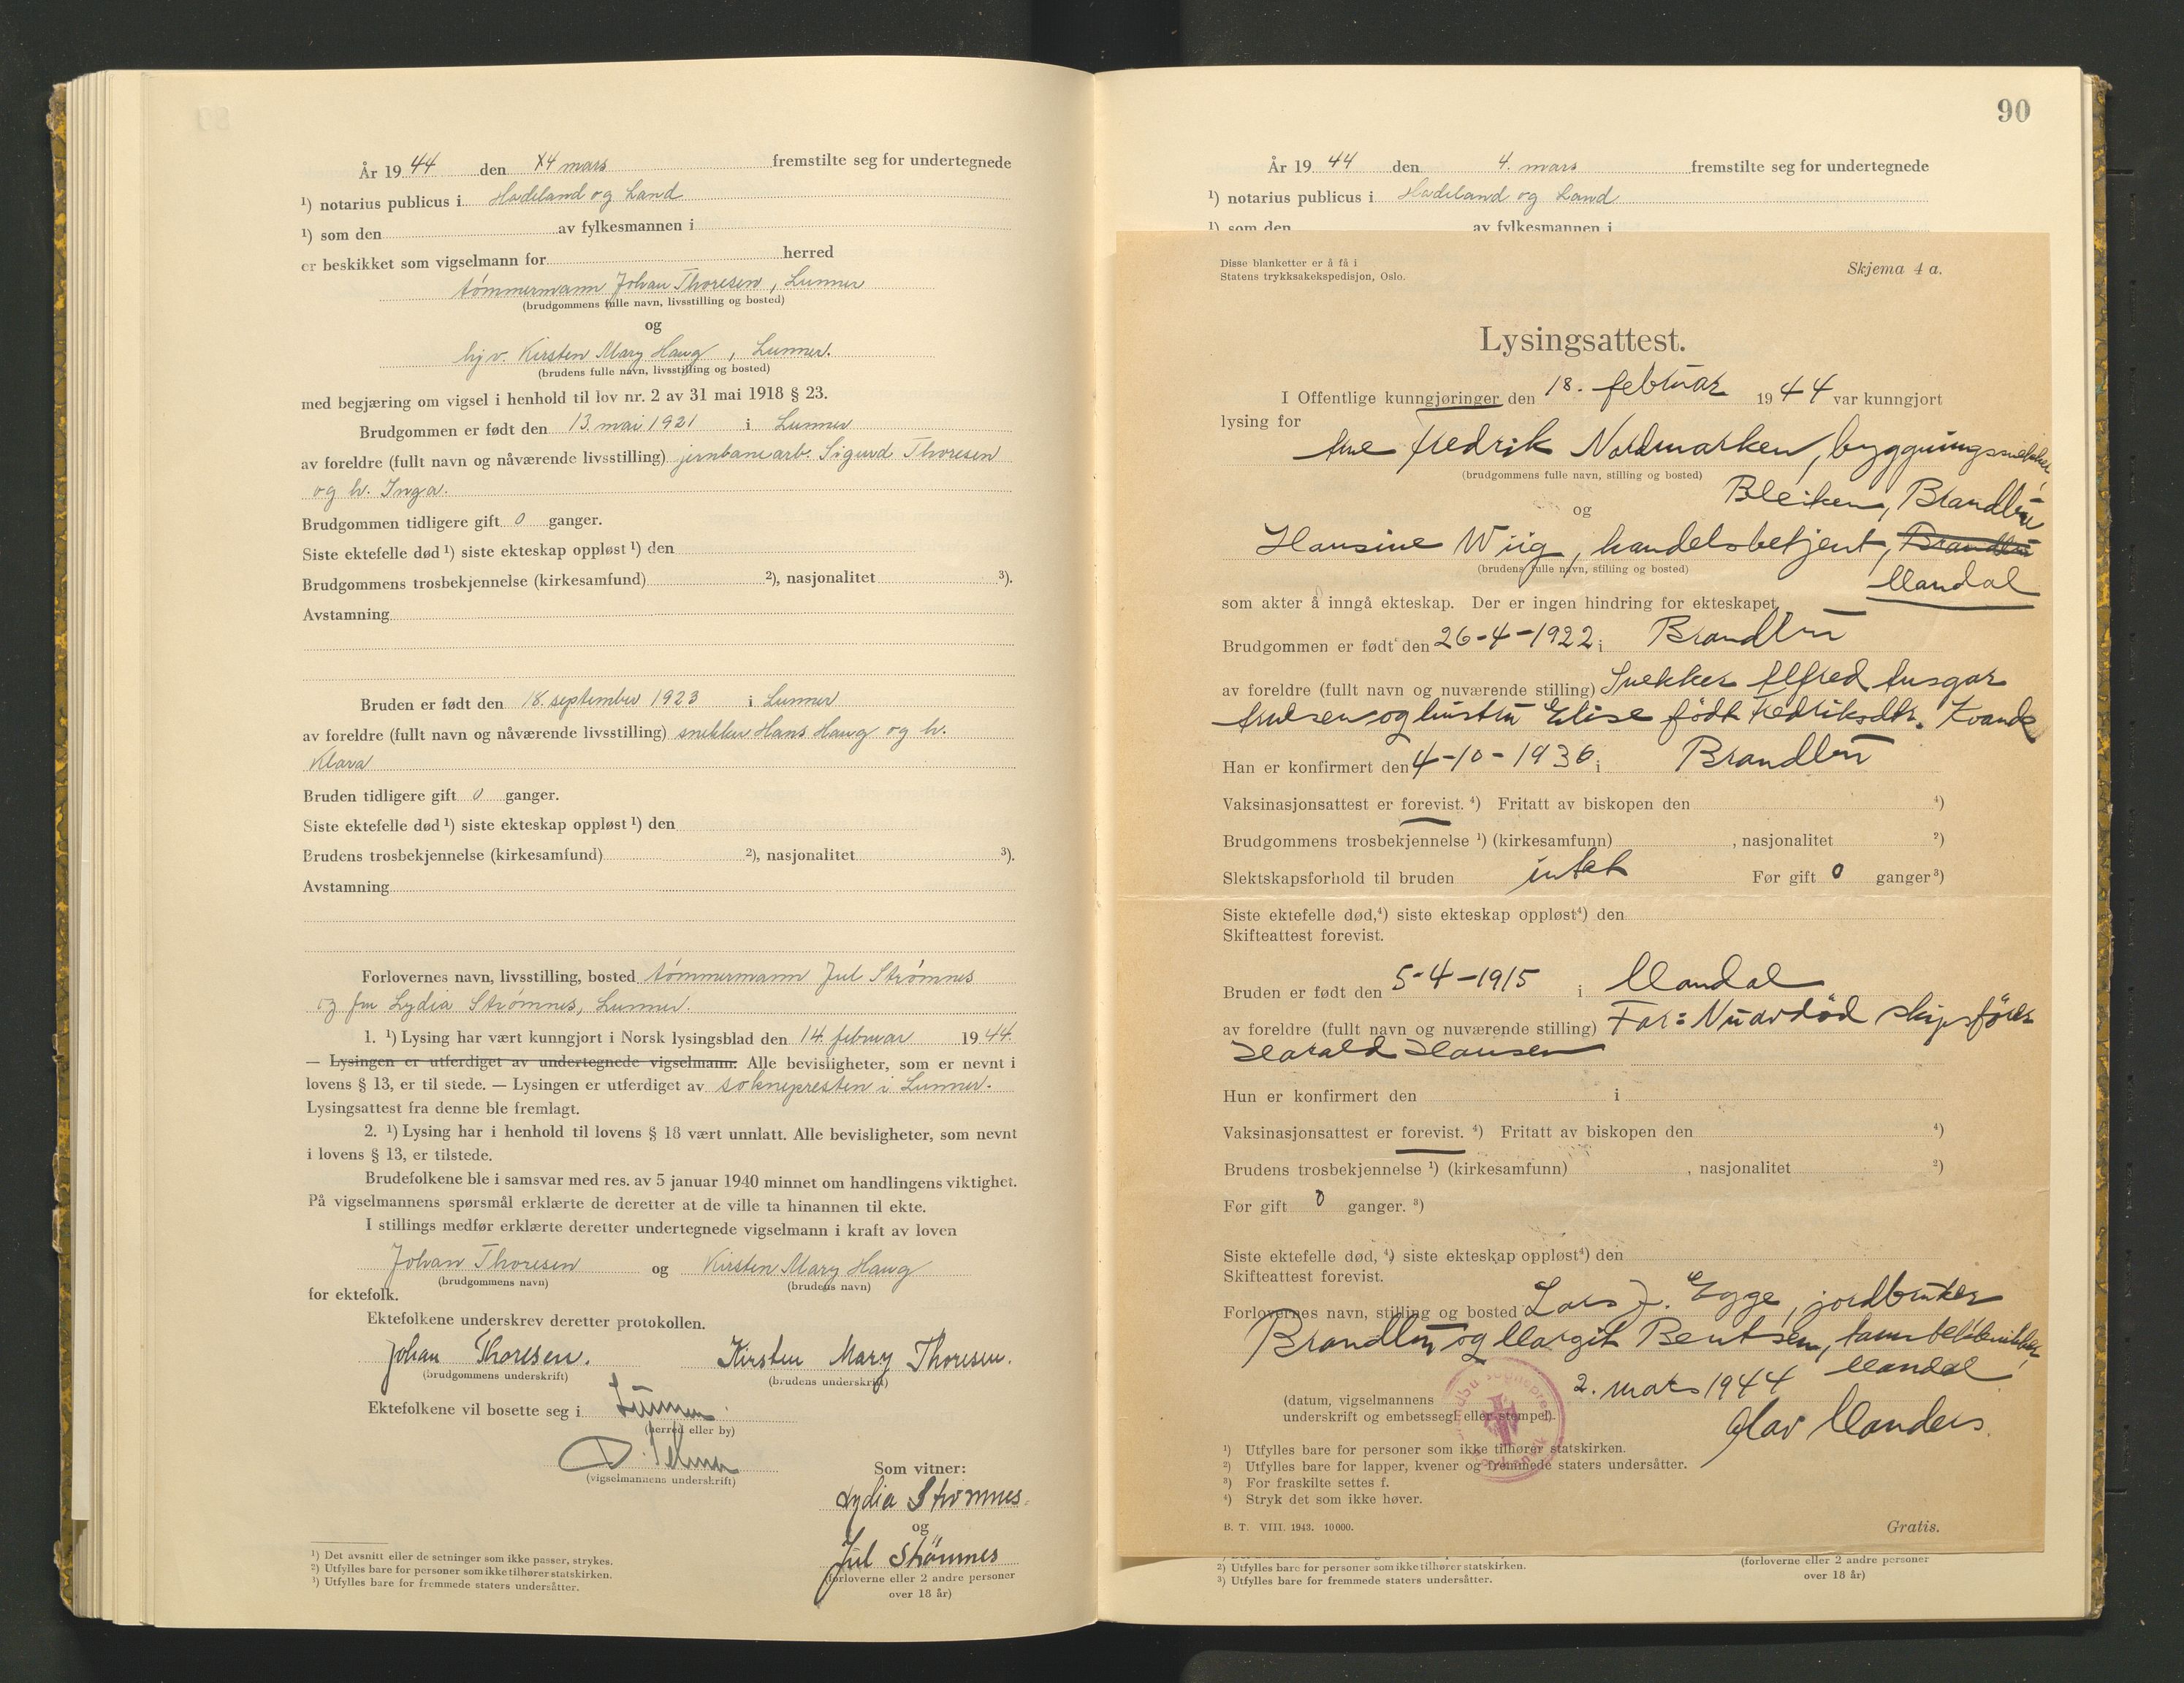 År 1944 den 4 mars fremstilte seg for undertegnede
¹) notarius publicus i Hadeland og Land
¹) som den av fylkesmannen i
er beskikket som vigselmann for herred
tømmermann Johan Thoresen, Lunner
(brudgommens fulle navn, livsstilling og bosted)
og
hj.v. Kirsten Mary Haug, Lunner.
(brudens fulle navn, livsstilling og bosted)
med begjæring om vigsel i henhold til lov nr. 2 av 31 mai 1918 § 23.
Brudgommen er født den 13. mai 1921 i Lunner
av foreldre (fullt navn og nåværende livsstilling) jernbanearb. Sigurd Thoresen
og h. Inga.
Brudgommen tidligere gift 0 ganger.
Siste ektefelle død ¹) siste ekteskap oppløst ¹) den
Brudgommens trosbekjennelse (kirkesamfund) ²), nasjonalitet ³).
Avstamning
Bruden er født den 18. september 1923 i Lunner
av foreldre (fullt navn og nåværende livsstilling) snekker Hans Haug og h.
Klara
Bruden tidligere gift 0 ganger.
Siste ektefelle død ¹) siste ekteskap oppløst ¹) den
Brudens trosbekjennelse (kirkesamfund) ²), nasjonalitet ³).
Avstamning
Forlovernes navn, livsstilling, bosted tømmermann Jul Strømnes
og fru Lydia Strømnes, Lunner.
1. ¹) Lysing har vært kunngjort i Norsk lysingsblad den 14. februar 1944.
— Lysingen er utferdiget av undertegnede vigselmann. Alle bevisligheter, som er nevnt i
lovens § 13, er til stede. — Lysingen er utferdiget av soknepresten i Lunner.
Lysingsattest fra denne ble fremlagt.
2. ¹) Lysing har i henhold til lovens § 18 vært unnlatt. Alle bevisligheter, som nevnt
i lovens § 13, er tilstede.
Brudefolkene ble i samsvar med res. av 5 januar 1940 minnet om handlingens viktighet.
På vigselmannens spørsmål erklærte de deretter at de ville ta hinannen til ekte.
I stillings medfør erklærte deretter undertegnede vigselmann i kraft av loven
Johan Thoresen og Kirsten Mary Haug
(brudgommens navn) (brudens navn)
for ektefolk.
Ektefolkene underskrev deretter protokollen.
Johan Thoresen. Kirsten Mary Thoresen.
(brudgommens underskrift) (brudens underskrift)
Ektefolkene vil bosette seg i Lunner
(herred eller by)
(vigselmannens underskrift)
Som vitner:
Lydia Strømnes.
og
Jul Strømnes
(forloverne eller 2 andre personer
over 18 år)
¹) Det avsnitt eller de setninger som ikke passer, strykes.
²) Utfylles bare for personer som ikke tilhører statskirken.
³) Utfylles bare for fremmede staters undersåtter.
90
År 1944 den 4. mars fremstilte seg for undertegnede
¹) notarius publicus i Hadeland og Land
¹) som den av fylkesmannen i
Disse blanketter er å få i
Statens trykksakekspedisjon, Oslo.
Skjema 4 a.
Lysingsattest.
I Offentlige kunngjøringer den 18. februar 1944 var kunngjort
lysing for
Arne Fredrik Nordmarken, byggningssnekker,
(brudgommens fulle navn, stilling og bosted)
Bleiken, Brandbu
og
Hansine Wiig, handelsbetjent, Brandbu
(brudens fulle navn, stilling og bosted)
Mandal
som akter å inngå ekteskap. Der er ingen hindring for ekteskapet
Brudgommen er født den 26-4-1922 i Brandbu
av foreldre (fullt navn og nuværende stilling) Snekker Alfred Ansgar
Arnesen og hustru Elise født Fredriksdtr.
Han er konfirmert den 4-10-1936 i Brandbu
Vaksinasjonsattest er forevist. ⁴) Fritatt av biskopen den ⁴)
Brudgommens trosbekjennelse ¹) (kirkesamfunn) , nasjonalitet ²)
Slektskapsforhold til bruden intet Før gift 0 ganger ³)
Siste ektefelle død,⁴) siste ekteskap oppløst⁴) den
Skifteattest forevist.
Bruden er født den 5-4-1915 i Mandal
av foreldre (fullt navn og nuværende stilling) Far: Nu avdød skipsfører
Harald Hansen
Hun er konfirmert den i
Vaksinasjonsattest er forevist. ⁴) Fritatt av biskopen den ⁴)
Brudens trosbekjennelse ¹) (kirkesamfunn) , nasjonalitet ²)
Før gift 0 ganger. ³)
Siste ektefelle død, ⁴) siste ekteskap oppløst⁴) den
Skifteattest forevist.
Forlovernes navn, stilling og bosted Lars J. Egge, jordbruker
Brandbu og Margit Bentsen,
Mandal
2. mars 1944
(datum, vigselmannens
underskrift og embetssegl eller stempel).
Olav Manders
¹) Utfylles bare for personer som ikke tilhører statskirken.
²) Utfylles bare for lapper, kvener og fremmede staters undersåtter.
³) For fraskilte settes f.
⁴) Stryk det som ikke høver.
B. T. VIII. 1943. 10000.
Gratis.
²) Utfylles bare for personer som ikke tilhører statskirken.
³) Utfylles bare for fremmede staters undersåtter.
(forloverne eller 2 andre personer
over 18 år)